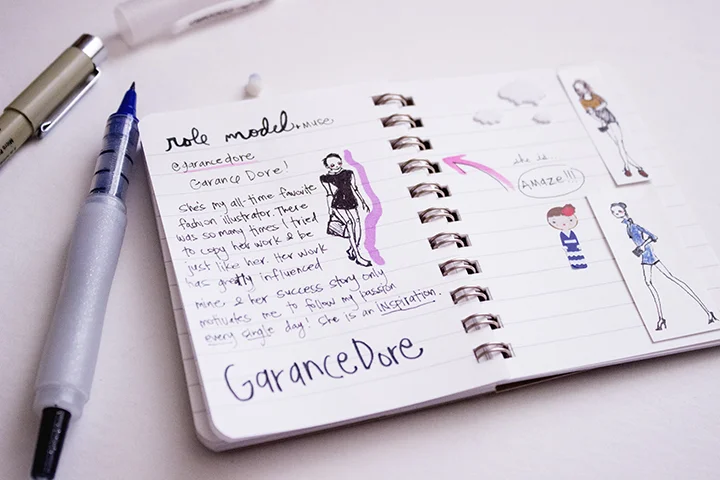 role model + muse
@garancedore
Garance Dore!
She's my all-time favorite
fashion illustrator. There
was so many times I tried
to copy her work & be
just like her. Her work
has greatly influenced
mine & her success story only
motivates me to follow my passion
every single day! She is an INSPIRATION.
GaranceDore
she is
Amaze!!!